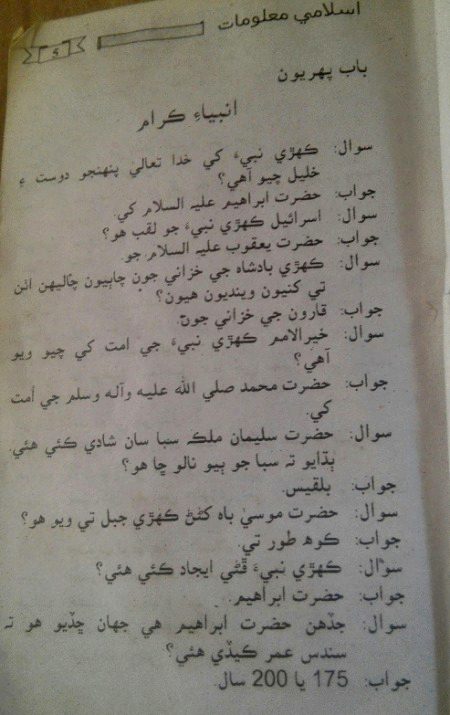 اسلامي معلومات
5
باب پهريون
انبياءِ ڪرام
سوال: ڪهڙي نبيءَ کي خدا تعاليٰ پنهنجو دوست ۽
خليل چيو آهي؟
جواب: حضرت ابراهيم عليہ السلام کي.
سوال: اسرائيل ڪهڙي نبيءَ جو لقب هو؟
جواب: حضرت يعقوب عليہ السلام جو
سوال: ڪهڙي بادشاه جي خزاني جون چابيون چاليهن اٺن
تي کنيون وينديون هيون؟
جواب: قارون جي خزاني جون.
سوال: خيرالامم ڪهڙي نبيءَ جي امت کي چيو ويو
آهي؟
جواب: حضرت محمد صلي الله عليه وآله وسلم جي اُمت
کي.
سوال: حضرت سليمان ملڪ سبا سان شادي ڪئي هئي.
ٻڌايو تہ سبا جو ٻيو نالو ڇا هو؟
جواب: بلقيس.
سوال: حضرت موسيٰ باه کڻڻ ڪهڙي جبل تي ويو هو؟
جواب: ڪوه طور تي.
سوال: ڪهڙي نبيءَ ڦڻي ايجاد ڪئي هئي؟
جواب: حضرت ابراهيم.
سوال: جڏهن حضرت ابراهيم هي جهان ڇڏيو هو تہ
سندس عمر ڪيڏي هئي؟
جواب: 175 يا 200 سال.